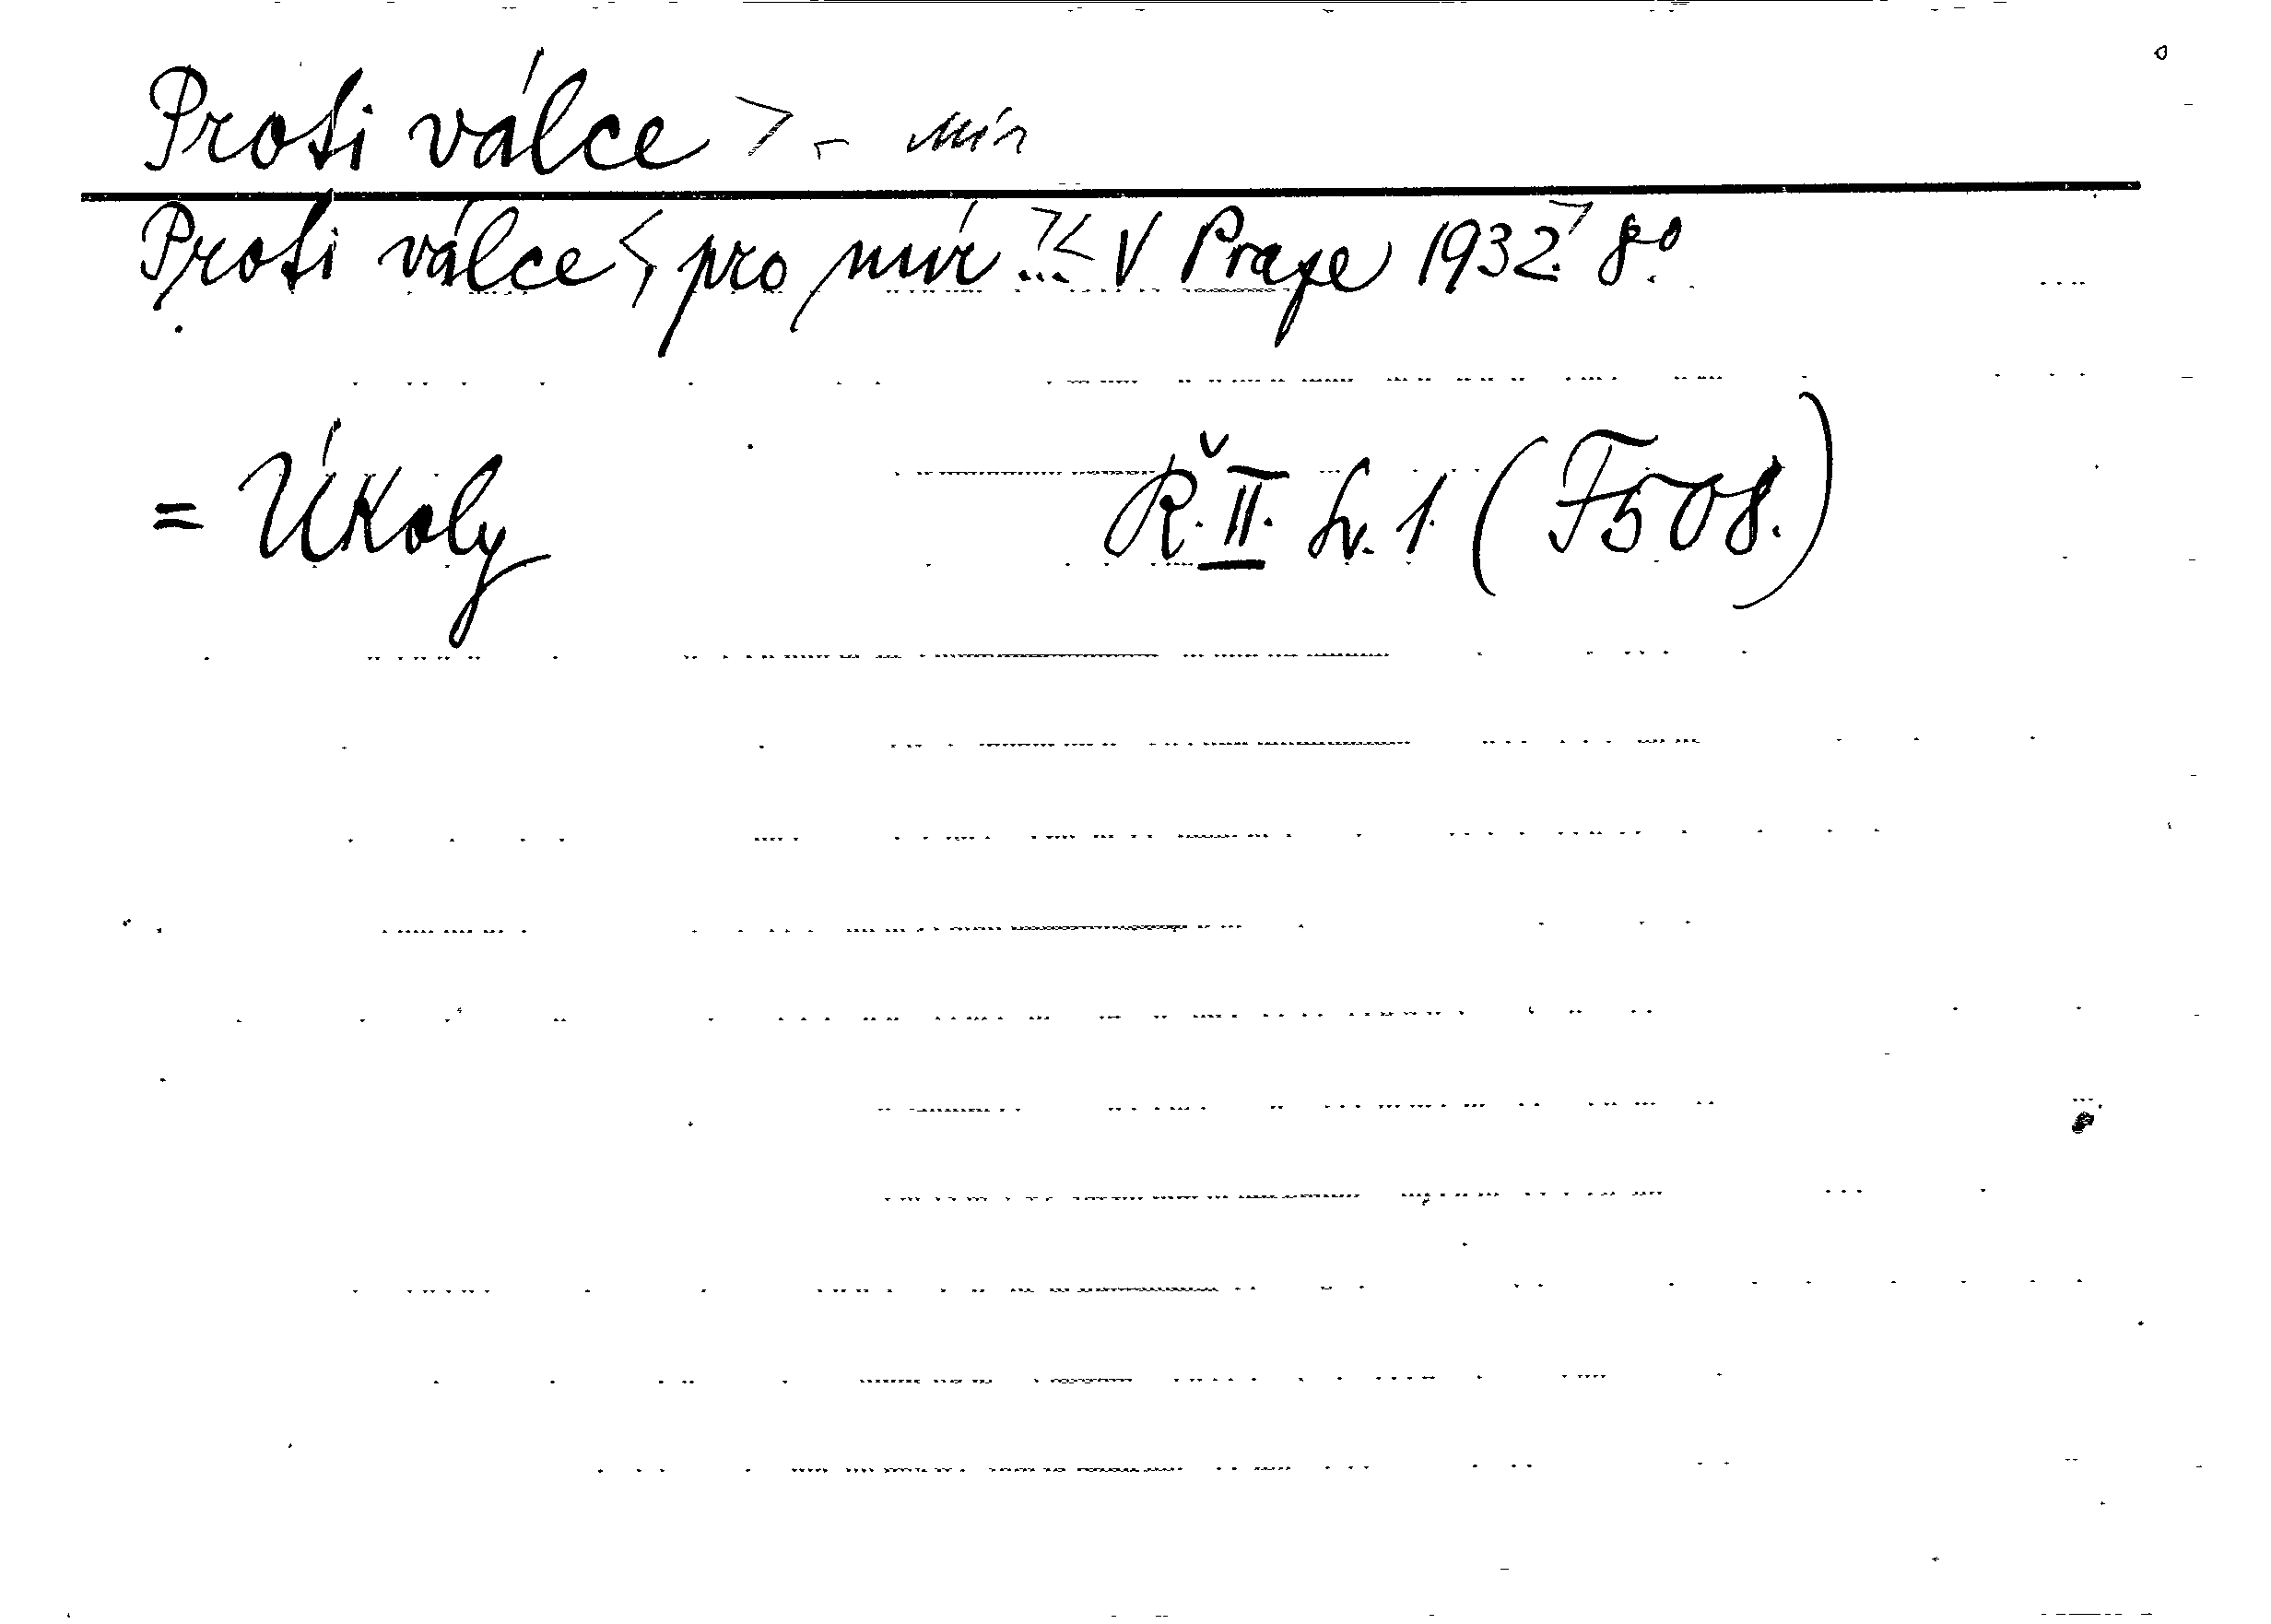 Proti válce > - mír
Proti válce <, pro mír ...>< V Praze 1932.> 8°.
= Úkoly Ř. II. sv. 1. (F508.)